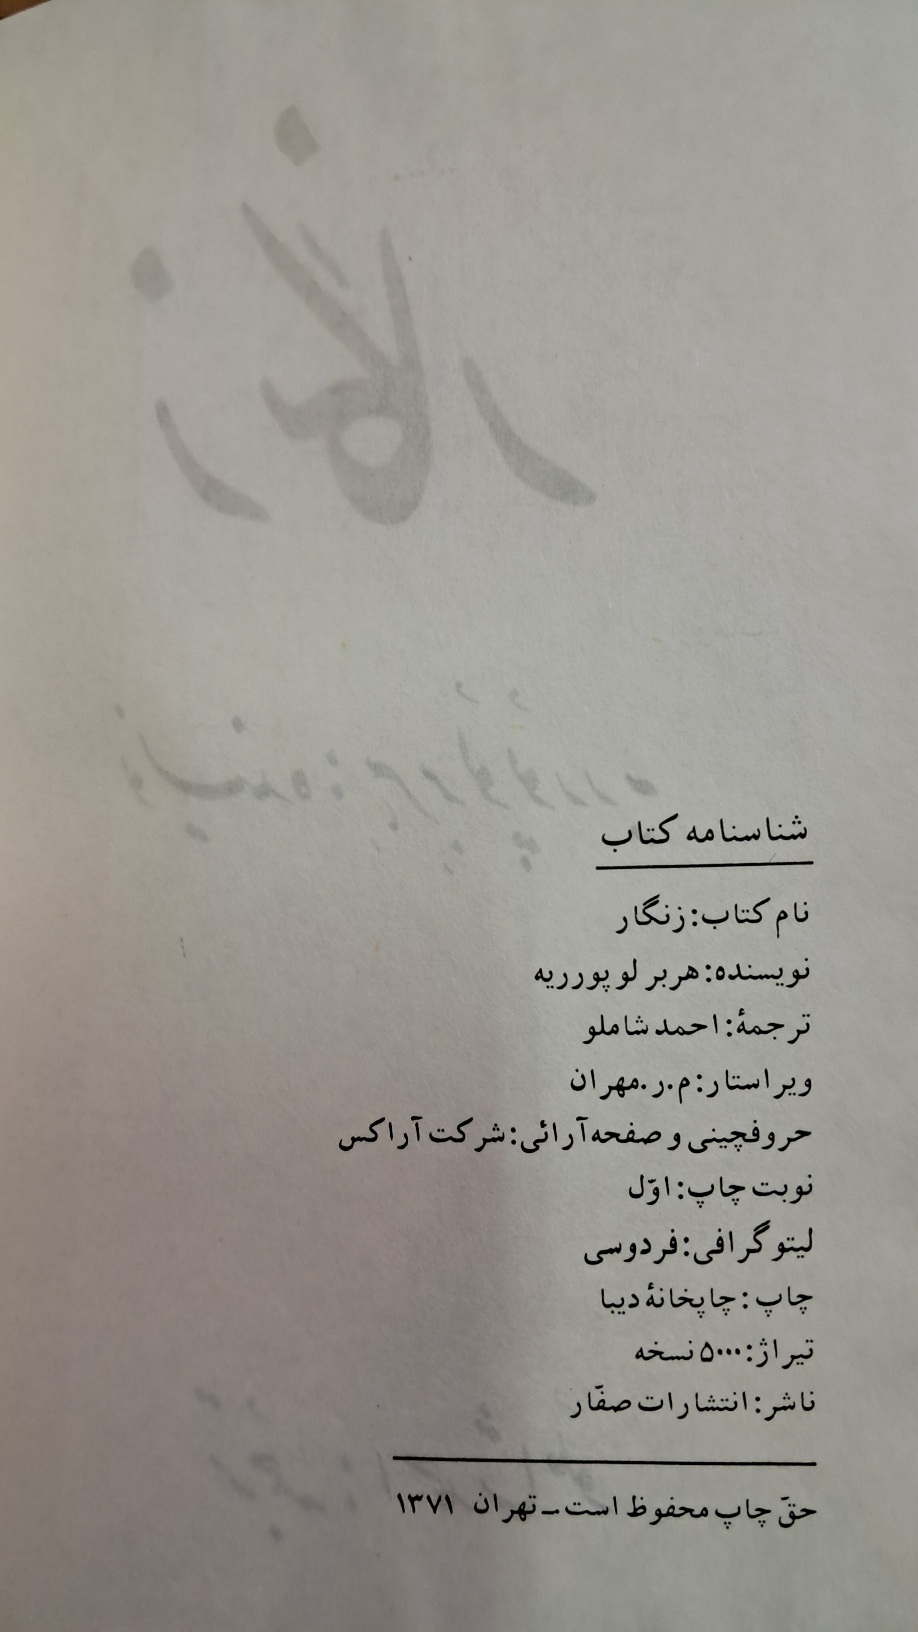 شناسنامه کتاب
نام کتاب: زنگار
نویسنده: هربر لو پورریه
ترجمهٔ: احمد شاملو
ویراستار: م.ر.مهران
حروفچینی و صفحه‌آرائی: شرکت آراکس
نوبت چاپ: اوّل
لیتوگرافی: فردوسی
چاپ: چاپخانهٔ دیبا
تیراژ: ۵۰۰۰ نسخه
ناشر: انتشارات صفّار
حقّ چاپ محفوظ است ـ تهران ۱۳۷۱